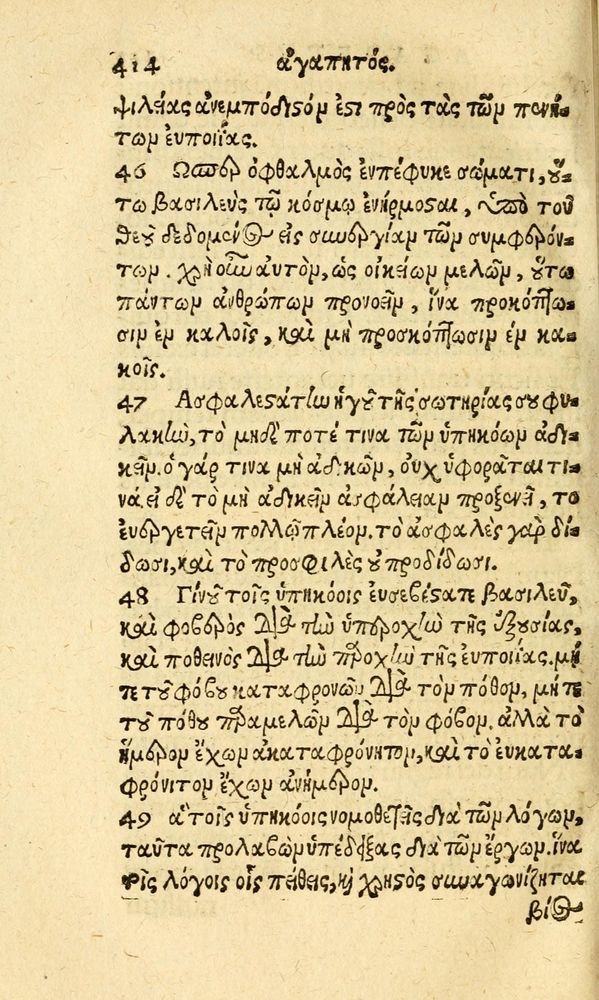 414 ἀγαπητός.
ψιλείας ἀνεμπόδιστον ἐστι πρὸς τὰς τῶν πενή-
των ἐυποιΐας.
46 Ὥσπερ ὀφθαλμὸς ἐνπέφυκε σώματι, οὕ-
τω βασιλεὺς τῷ κόσμῳ ἐνήρμοσαι, ὑπὸ τοῦ
θεοῦ δεδομένος εἰς συνεργίαν τῶν συμφερόν-
των. χρὴ οὖν αυτὸν, ὡς οἰκείων μελῶν, οὕτω
πάντων ἀνθρώπων προνοεῖν, ἵνα προκόπτω-
σιν ἐν καλοῖς, καὶ μὴ προσκόπτωσιν ἐν κα-
κοῖς.
47 Ασφαλεστάτην ἡγοῦ τῆς σωτηρίας σου φυ-
λακὴν, τὸ μηδέ ποτέ τινα τῶν ὑπηκόων ἀδι-
κεῖν. ὁ γάρ τινα μὴ ἀδικῶν, ουχ ὑφορᾶται τι-
νά. εἰ δὲ τὸ μὴ ἀδικεῖν ἀσφάλειαν προξενεῖ, τὸ
ἐυεργετεῖν πολλῷ πλέον. τὸ ἀσφαλὲς γὰρ δί-
δωσι, καὶ τὸ προσφιλὲς οὐ προδίδωσι.
48 Γίνου τοῖς ὑπηκόοις ἐυσεβέστατε βασιλεῦ,
καὶ φοβερὸς διὰ τὴν ὑπεροχὴν τῆς ἐξουσίας,
καὶ ποθεινὸς διὰ τὴν παροχὴν τῆς ἐυποιΐας. μή
τε τοῦ φόβου καταφρονῶν διὰ τὸν πόθον, μήτε
τοῦ πόθου παραμελῶν διὰ τὸν φόβον. ἀλλὰ τὸ
ἥμερον ἔχων ἀκαταφρόνητον, καὶ τὸ ἐυκατα-
φρόνιτον ἔχων ἀνήμερον.
49 ἃ τοῖς ὑπηκόοις νομοθετεῖς διὰ τῶν λόγων,
ταῦτα προλαβὼν ὑπέδειξας διὰ τῶν ἔργων. ἵνα
τοῖς λόγοις οἷς πείθεις, καὶ χρηστὸς συναγωνίζηται
βίος